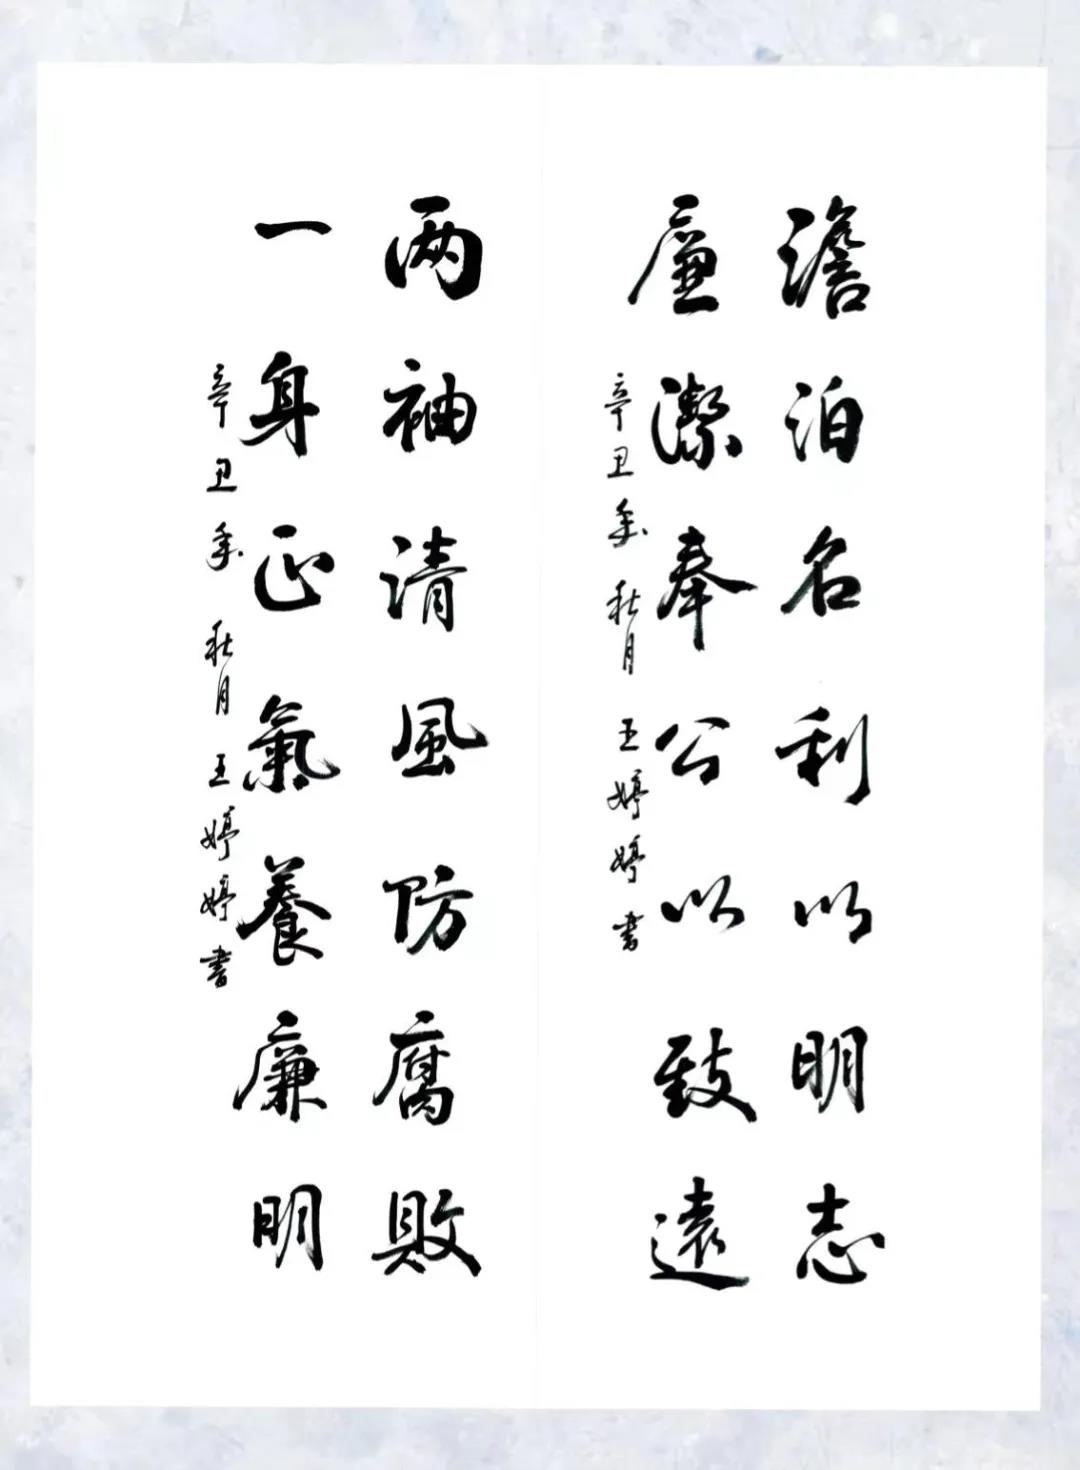 澹泊名利以明志
廉潔奉公以致遠
辛丑年秋月王婷婷書
两袖清風防腐敗
一身正氣養廉明
辛丑年秋月王婷婷書